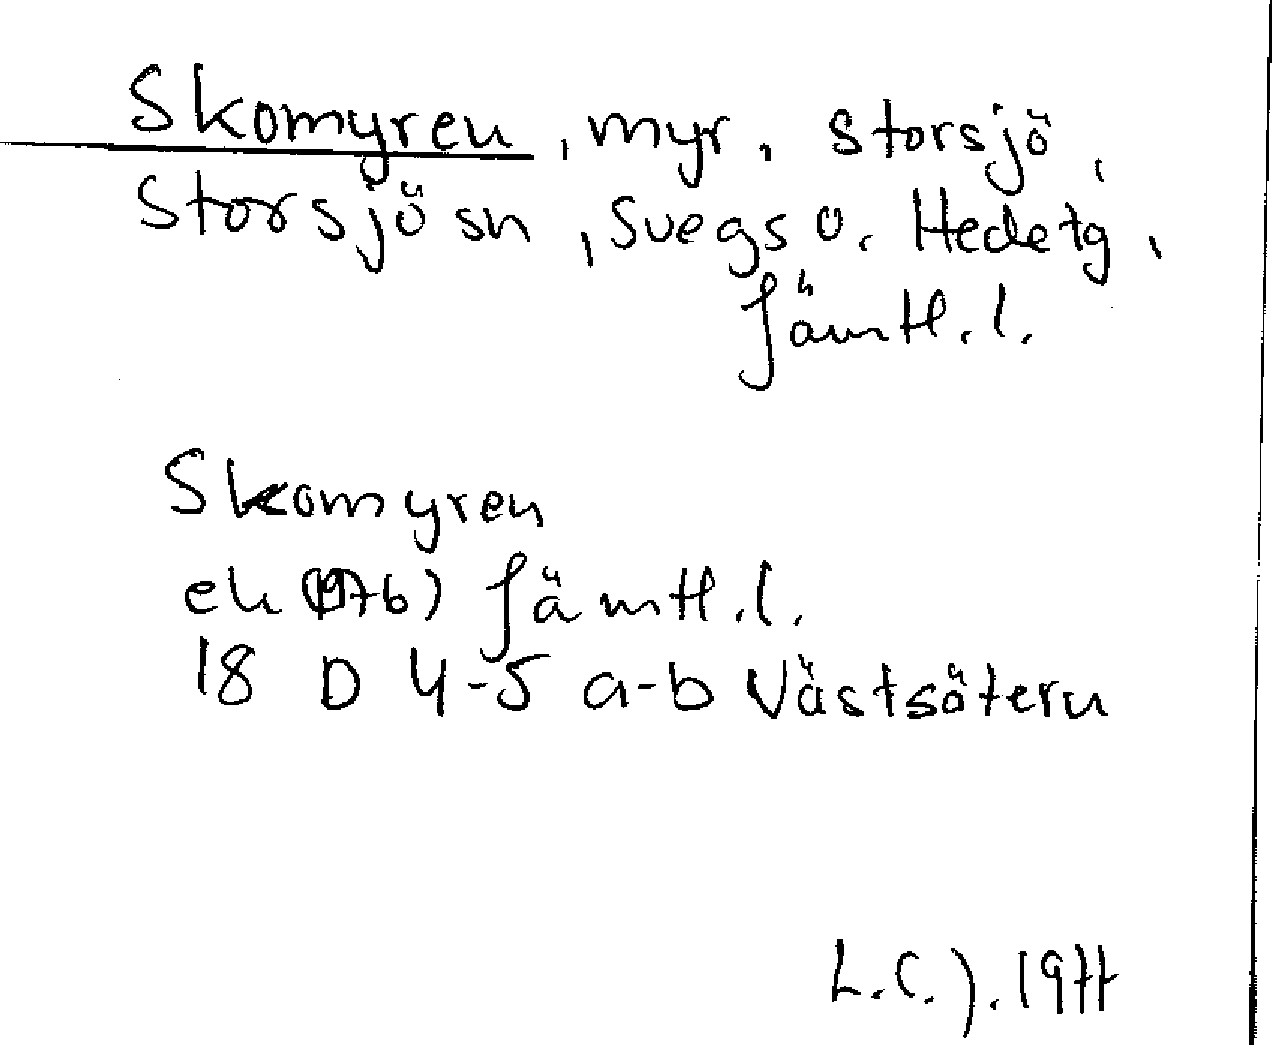 Skomyren, myr, Storsjö,
Storsjö sn, Svegs o. Hede tg,
Jämtl. l.
Skomyren
ek (1976) Jämtl. l.
18 D 4-5 a-b Västsätern
L.C.J. 1977